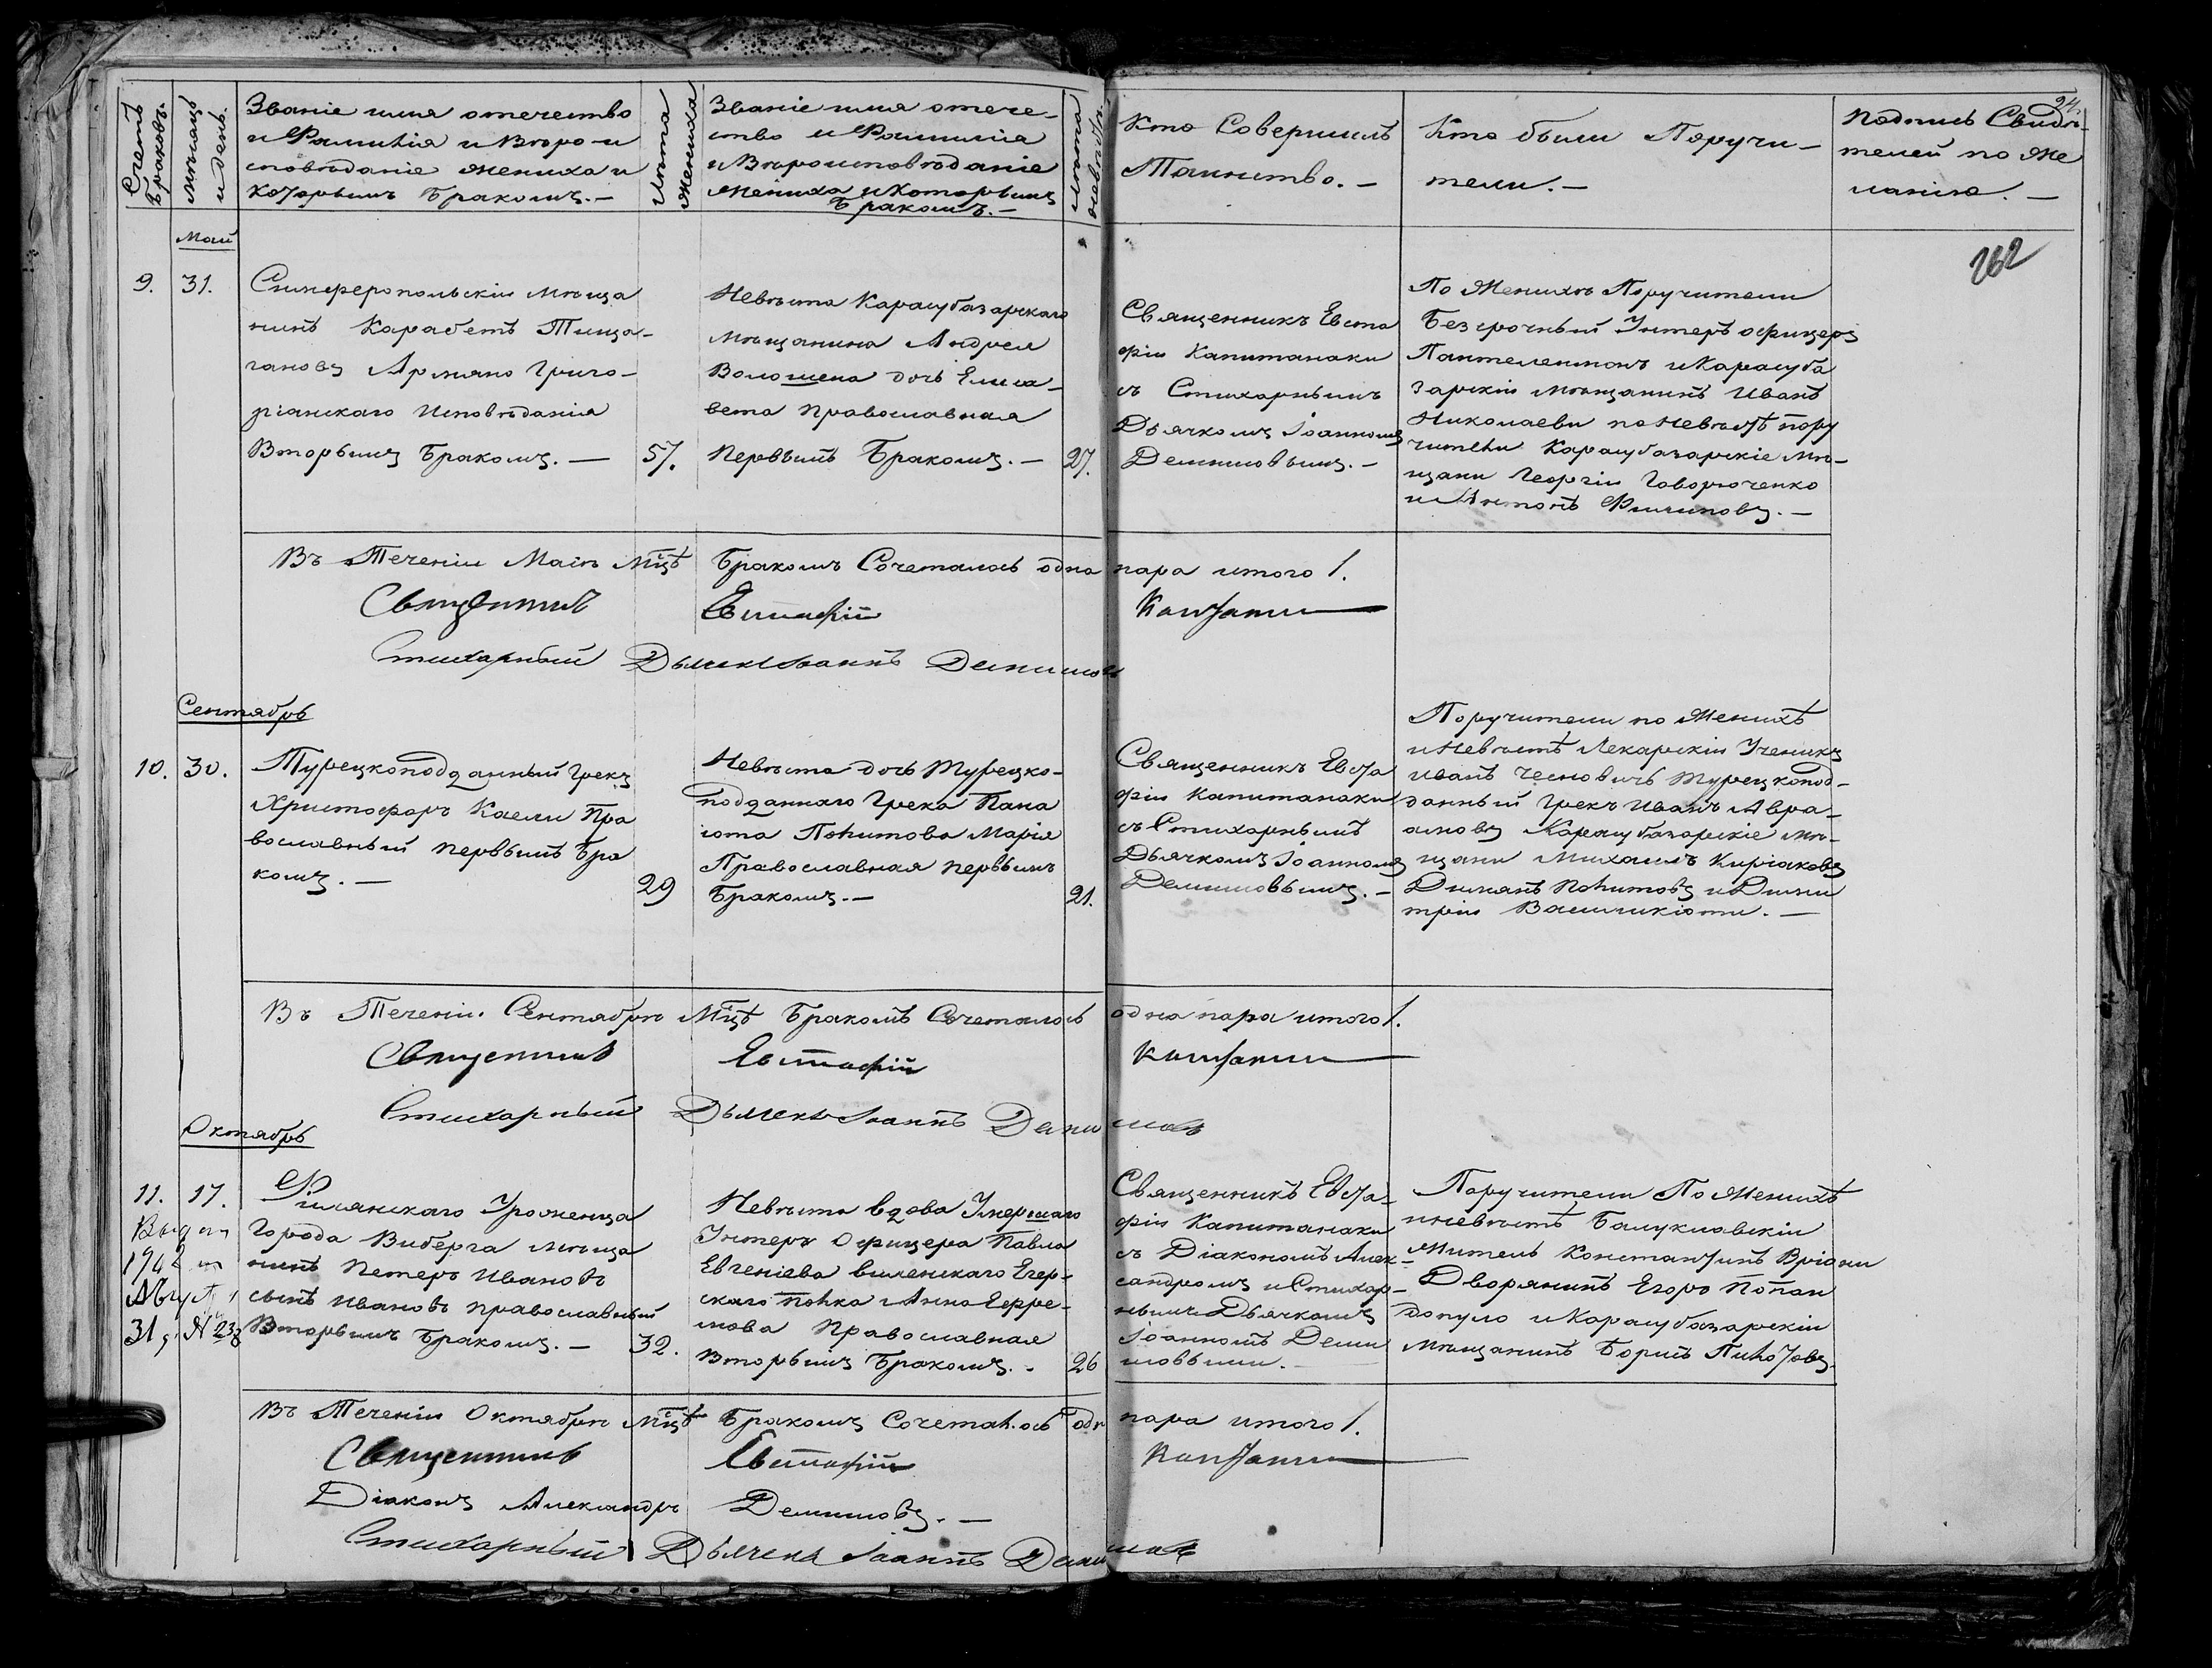 24.
262
Счетъ Браковъ.
Мѣсяцъ и день.
Званіе имя отечество
и Фамилія и Вѣро-и
сповѣданіе жениха и
которымъ Бракомъ. —
Лѣта Жениха
Званіе имя отече-
ство и Фамилія
и Вѣроисповѣданіе
жениха и Которымъ
Бракомъ. —
Лѣта невѣсты
Кто Совершилъ
Таинство. —
Кто были Поручи-
тели. —
Подпись Свидѣ-
телей по же
ланію. —
Май
9. 31.
Симферопольскій мѣща
нинъ Карабетъ Тища-
гановъ Армяно Григо-
ріанскаго исповѣданія
Вторымъ Бракомъ. — 57.
Невѣста Карасубазарскаго
мѣщанина Андрея
Волошена дочь Елиса-
вета православная
первымъ Бракомъ. — 27.
Священникъ Евста
фій Капитанаки
съ Стихарнымъ
Дьячкомъ Іоанномъ
Демишовымъ. —
По Женихѣ Поручители
Безсрочный Унтеръ офицеръ
Пантелеимонъ и Карасуба
зарскій мѣщанинъ Иванъ
Николаеви по Невѣстѣ пору
чители Карасубазарскіе мѣ-
щани Георгіи Говорюченко
и Антонъ Филиповъ. —
Въ Теченіи Маія Мцѣ Бракомъ Сочеталось одна пара итого 1.
Священникъ Евстафій
Стихарный Дьячекъ Іоаннъ
Сентябрь
10. 30.
Турецкоподданный Грекъ
Христофоръ Каели Пра
вославный первымъ Бра
комъ. — 29
Невѣста дочь Турецко-
подданнаго Грека Пана
іота Политова Марія
Православная первымъ
Бракомъ. — 21.
Священникъ Евста
фій Капитанаки
съ Стихарнымъ
Дьячкомъ Іоанномъ
Демишовымъ. —
Поручители по Женихѣ
и Невѣстѣ Лекарскій Ученикъ
Иванъ Чесновичъ Турецкопод-
данный Грекъ Иванъ Авра-
амовъ Карасубазарскіе мѣ-
щани Михаилъ Киріаковъ
Диманъ Политовъ и Дими
трій Василикіоти. —
Въ Теченіи Сентября Мцѣ Бракомъ Сочеталось одна пара итого 1.
Священникъ Евстафій
Стихарный Дьячекъ Іоаннъ
Октябрь
11. 17.
1902
Авгу
31, № 238
Города Виберга мѣща
нинъ Петеръ Ивановъ
сынъ Ивановъ православный
Вторымъ Бракомъ. — 32.
Невѣста вдова Умершаго
Унтеръ Офицера Павла
Евгеніева виленскаго Егер-
скаго полка Анна Ефре-
мова Православная
Вторымъ Бракомъ. - 26
Священникъ Евста-
фій Капитанаки
съ Діакономъ Алек-
сандромъ и Стихар-
нымъ Дьячкомъ
Іоанномъ Деми
шовыми. —
Поручители По Женихѣ
и невѣстѣ Балуклавскіи
Житель Константинъ Вріони
Дворянинъ Егоръ Попан
допуло и Карасубазарскіи
мѣщанинъ Борисъ
Въ Теченіи Октября Мцѣ Бракомъ Сочеталось одн пара итого 1.
Священникъ Евстафій
Діаконъ Александръ Демишовъ. —
Стихарный Дьячекъ Іоаннъ